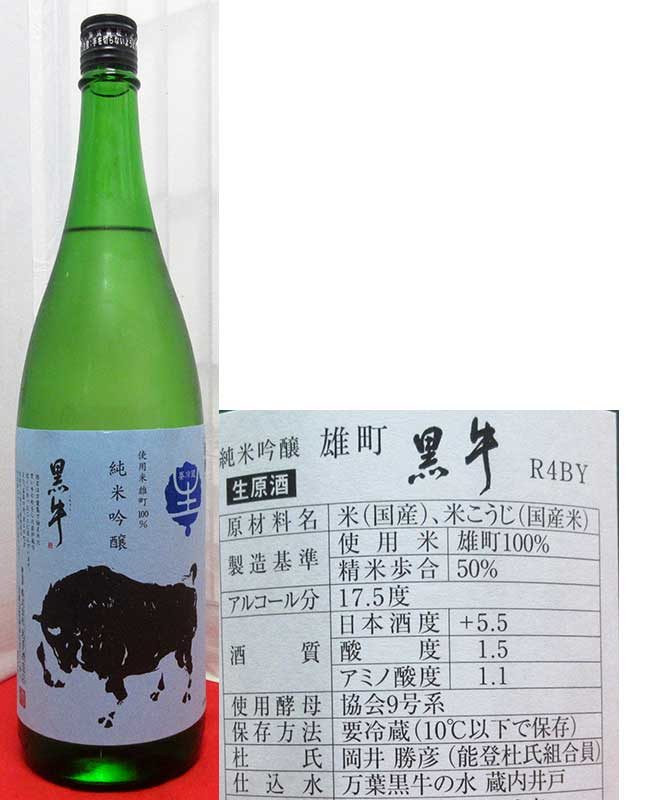 使用米 雄町 100%
純米吟醸
黒牛
要冷蔵
生
純米吟醸 雄町 黒牛 R4BY
生原酒
原材料名 米(国産)、米こうじ(国産米)
製造基準 使用米 雄町100%
精米歩合 50%
アルコール分 17.5度
酒質 日本酒度 +5.5
酸度 1.5
アミノ酸度 1.1
使用酵母 協会9号系
保存方法 要冷蔵(10℃以下で保存)
杜氏 岡井 勝彦(能登杜氏組合員)
仕込水 万葉黒牛の水 蔵内井戸